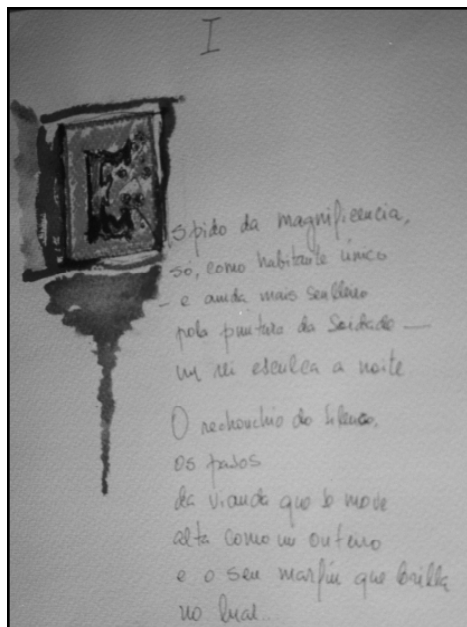 I
Espido da magnificencia,
só, como habitante único
– e ainda mais senlleiro
pola puntura da Saidade —
un rei esculca a noite
O rechouchío do silencio,
os pasos
da vianda que se move
alta como un outeiro
e o seu marfín que brilla
no luar...